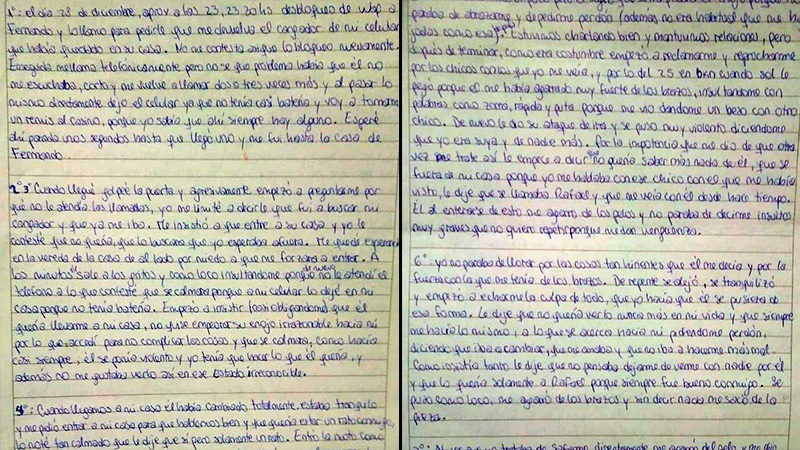 1º: el día 28 de diciembre, aprox a las 23, 23.20 hs desbloqueo de wsp a
Fernando y lo llamo para pedirle que me devuelva el cargador de mi celular
que había quedado en su casa. No me contesta así que lo bloqueo nuevamente.
Enseguida me llama telefónicamente pero no se que problema había que él no
me escuchaba, cortó y me vuelve a llamar dos o tres veces más y al pasar lo
mismo directamente dejo el celular ya que no tenía casi batería y voy a tomarme
un remis al casino, porque yo sabía que ahí siempre hay alguno. Esperé
ahí parada unos segundos hasta que llegó uno y me fui hasta la casa de
Fernando.
2º 3º Cuando llegué golpié la puerta y agresivamente empezó a preguntarme por
qué no le atendía las llamadas, yo me limité a decirle que fui a buscar mi
cargador y que ya me iba. Me insistió a que entre a su casa y yo le
contesté que no quería, que lo buscara que yo esperaba afuera. Me quedé esperando
en la vereda de la casa de al lado por miedo a que me forzara a entrar. A
los minutos él sale a los gritos y como loco insultandome porque de nuevo no le atendí el
teléfono a lo que contesté que se calmara porque a mi celular lo dejé en mi
casa porque no tenía batería. Empezó a insistir (casi obligandome) que él
quería llevarme a mi casa, no quise empeorar su enojo irrazonable hacia mí
por lo que accedí para no complicar las cosas y que se calmara, como hacía
casi siempre, él se ponía violento y yo tenía que hacer lo que él quería, y
además no me gustaba verlo así en ese estado irreconocible.
4º: Cuando llegamos a mi casa él había cambiado totalmente, estaba tranquilo
y me pidió entrar a mi casa para que hablemos bien y que quería estar un rato conmigo,
lo noté tan calmado que le dije que sí pero solamente un rato. Entró la moto como
paraba de abrazarme y de pedirme perdón (además no era habitual que me
Estuvimos charlando bien y mantuvimos relaciones, pero
después de terminar, como era costumbre empezó a reclamarme y reprocharme
por los chicos con los que yo me veía, y por lo del 25 en bkn cuando sol le
pegó porque el me había agarrado muy fuerte de los brazos, insultandome con
palabras como zorra, rápida y puta porque me vio dandome un beso con otro
chico. De nuevo le dio su ataque de ira y se puso muy violento diciendome
que yo era suya y de nadie más. Por la impotencia que me dio de que otra
vez me trate así le empecé a decir que no quería saber más nada de él, que se
fuera de mi casa porque yo me hablaba con ese chico con el que me había
visto, le dije que se llamaba Rafael y que me veía con él desde hace tiempo.
Él al enterarse de esto me agarró de los pelos y no paraba de decirme insultos
muy graves que no quiero repetir porque me dan vergüenza.
6º: yo no paraba de llorar por las cosas tan hirientes que él me decía y por la
fuerza con la que me tenía de los brazos. De repente se alejó, se tranquilizó
y empezó a echarme la culpa de todo, que yo hacía que él se pusiera de
esa forma. Le dije que no quería verlo nunca más en mi vida y que siempre
me hacía lo mismo, a lo que se acerca hacia mí pidiendome perdón,
diciendo que iba a cambiar, que me amaba y que no iba a hacerme más mal.
Como insistía tanto le dije que no pensaba dejarme de verme con nadie por él
y que lo quería solamente a Rafael porque siempre fue bueno conmigo. Se
puso como loco, me agarró de los brazos y sin decir nada me sacó de la
pieza.